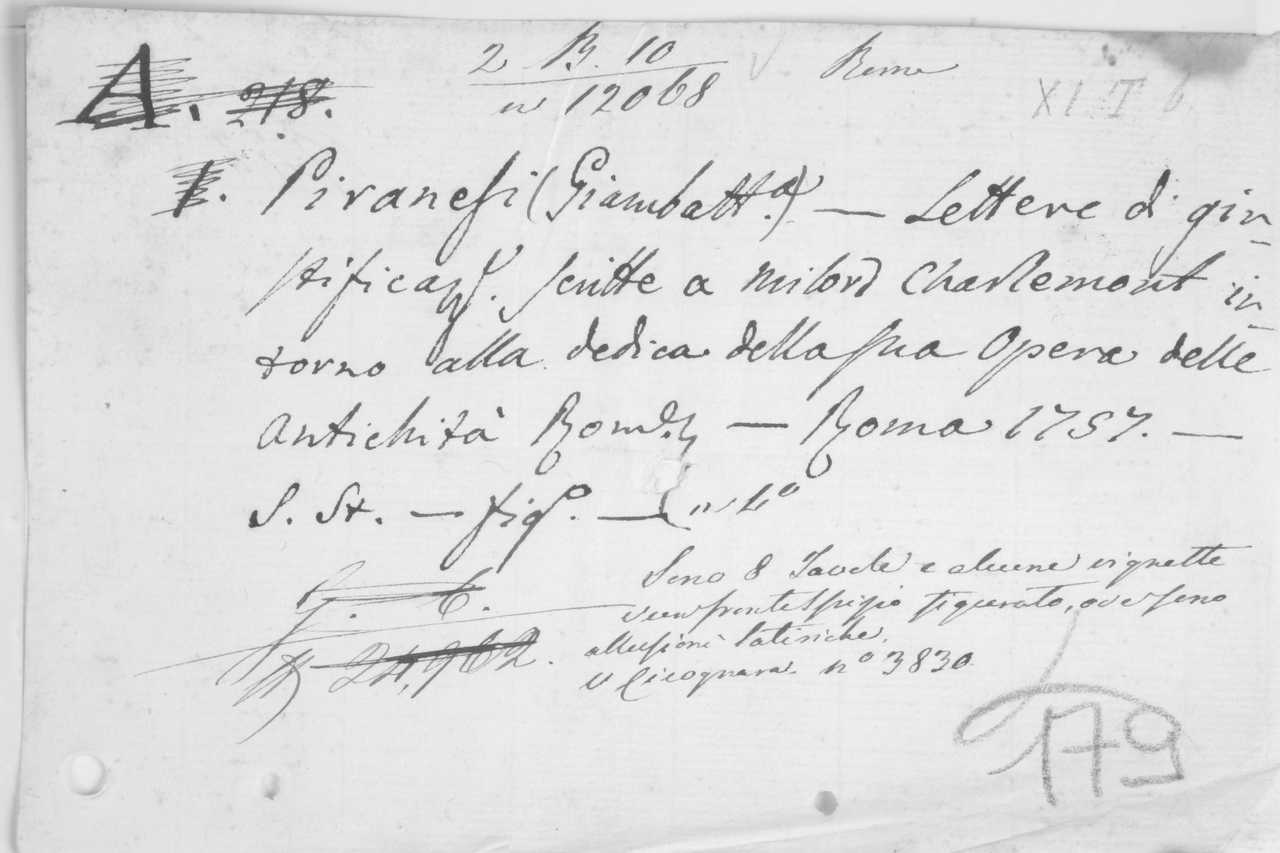 2 B. 10
n° 12068
Roma
XI. T. 6
A. 218.
I. Piranesi (Giambatt.a) — Lettere di giu-
stificaz.e scritte a Milord Charlemont in-
torno alla dedica della sua Opera delle
Antichità Rom.e — Roma 1757. —
S. St. — fig.o — in 4°
Sono 8 Tavole e alcune vignette
e un frontespizio figurato, ove sono
allusioni satiriche.
V Cicognara n° 3830
24,962.
179